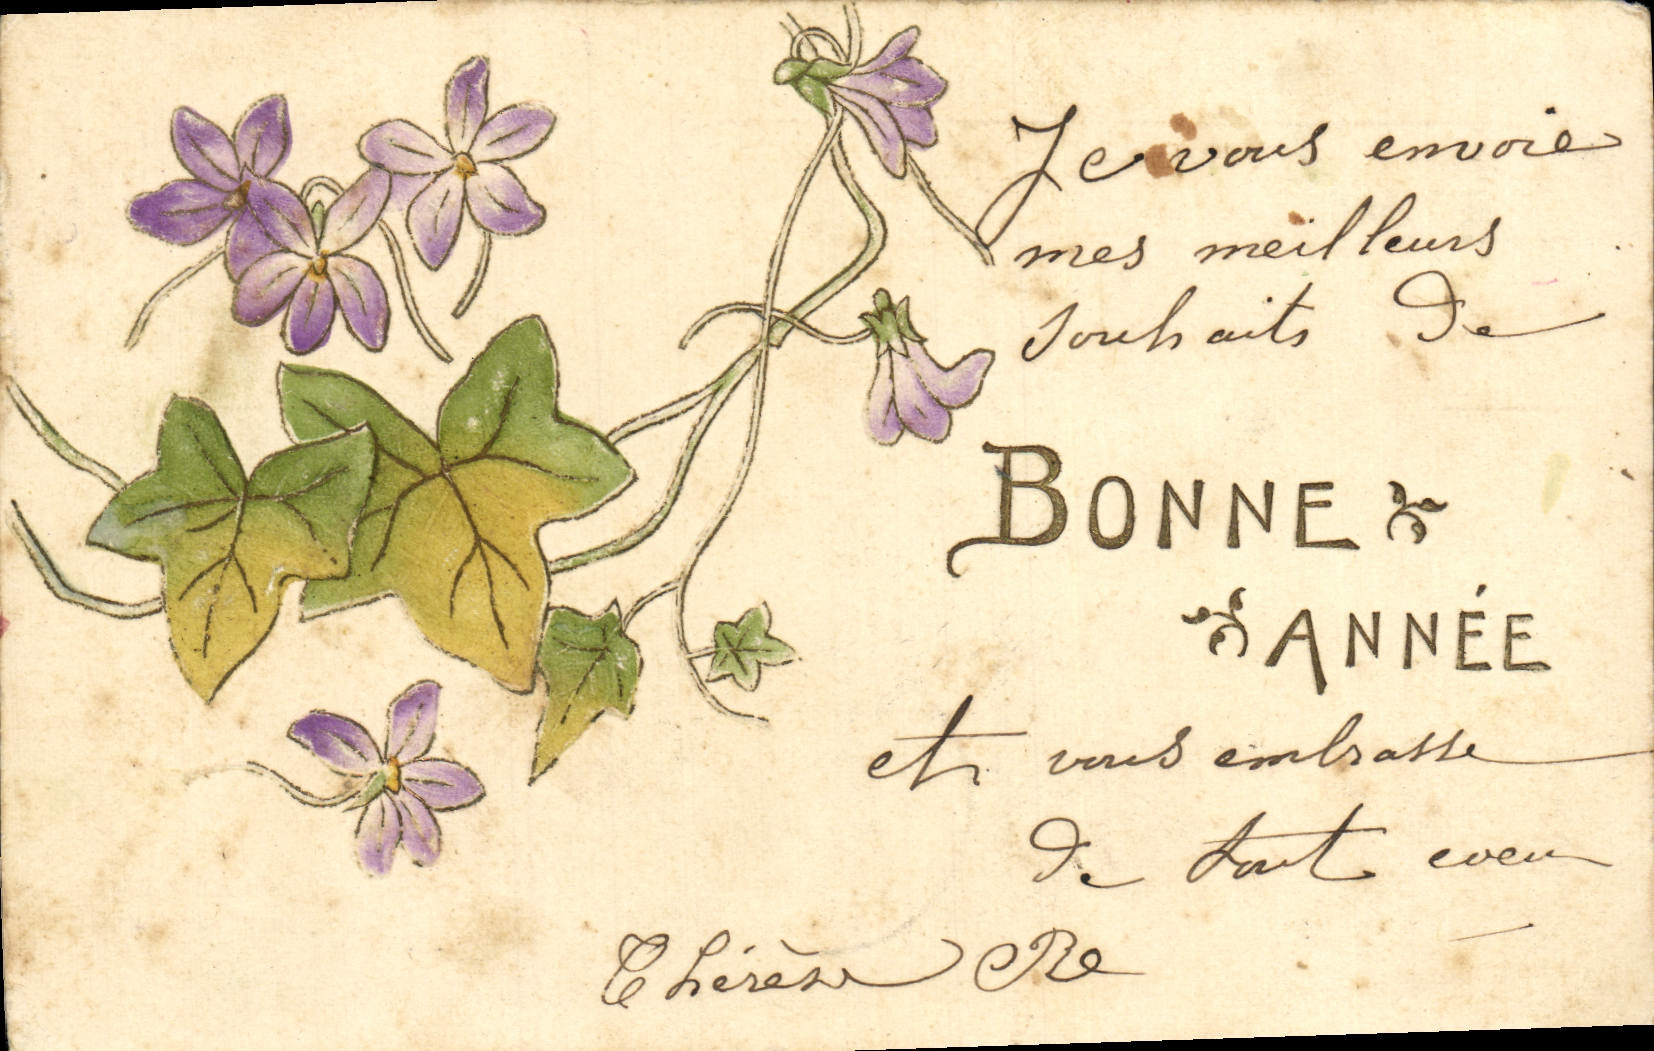 Je vous envoie
mes meilleurs
souhaits de
BONNE
ANNÉE
et vous embrasse
de tout coeur
Thérèse Re